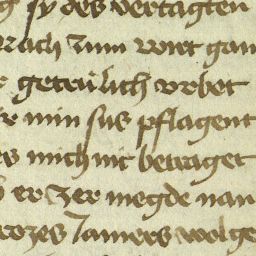 g sy des vertagten
Nach zum wirt gan
r getrulich vrbet
ir min sus pflagent
es mich nit betraget
er zer megde nan
rozes Jamers wolge